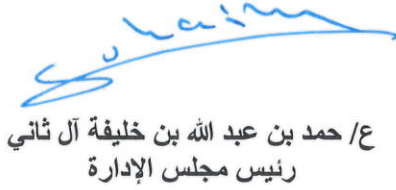 ع/ حمد بن عبد الله بن خليفة آل ثاني
رئيس مجلس الإدارة